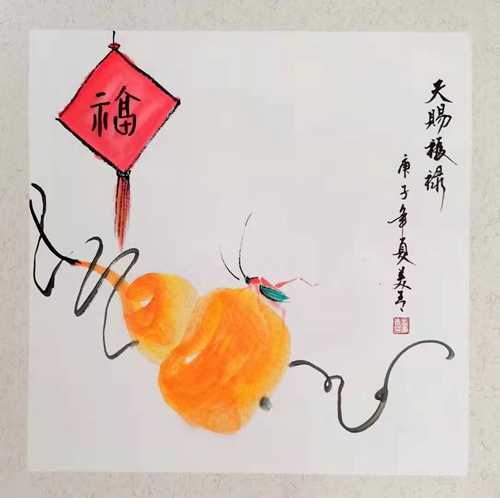 天賜福禄
庚子年夏美
福